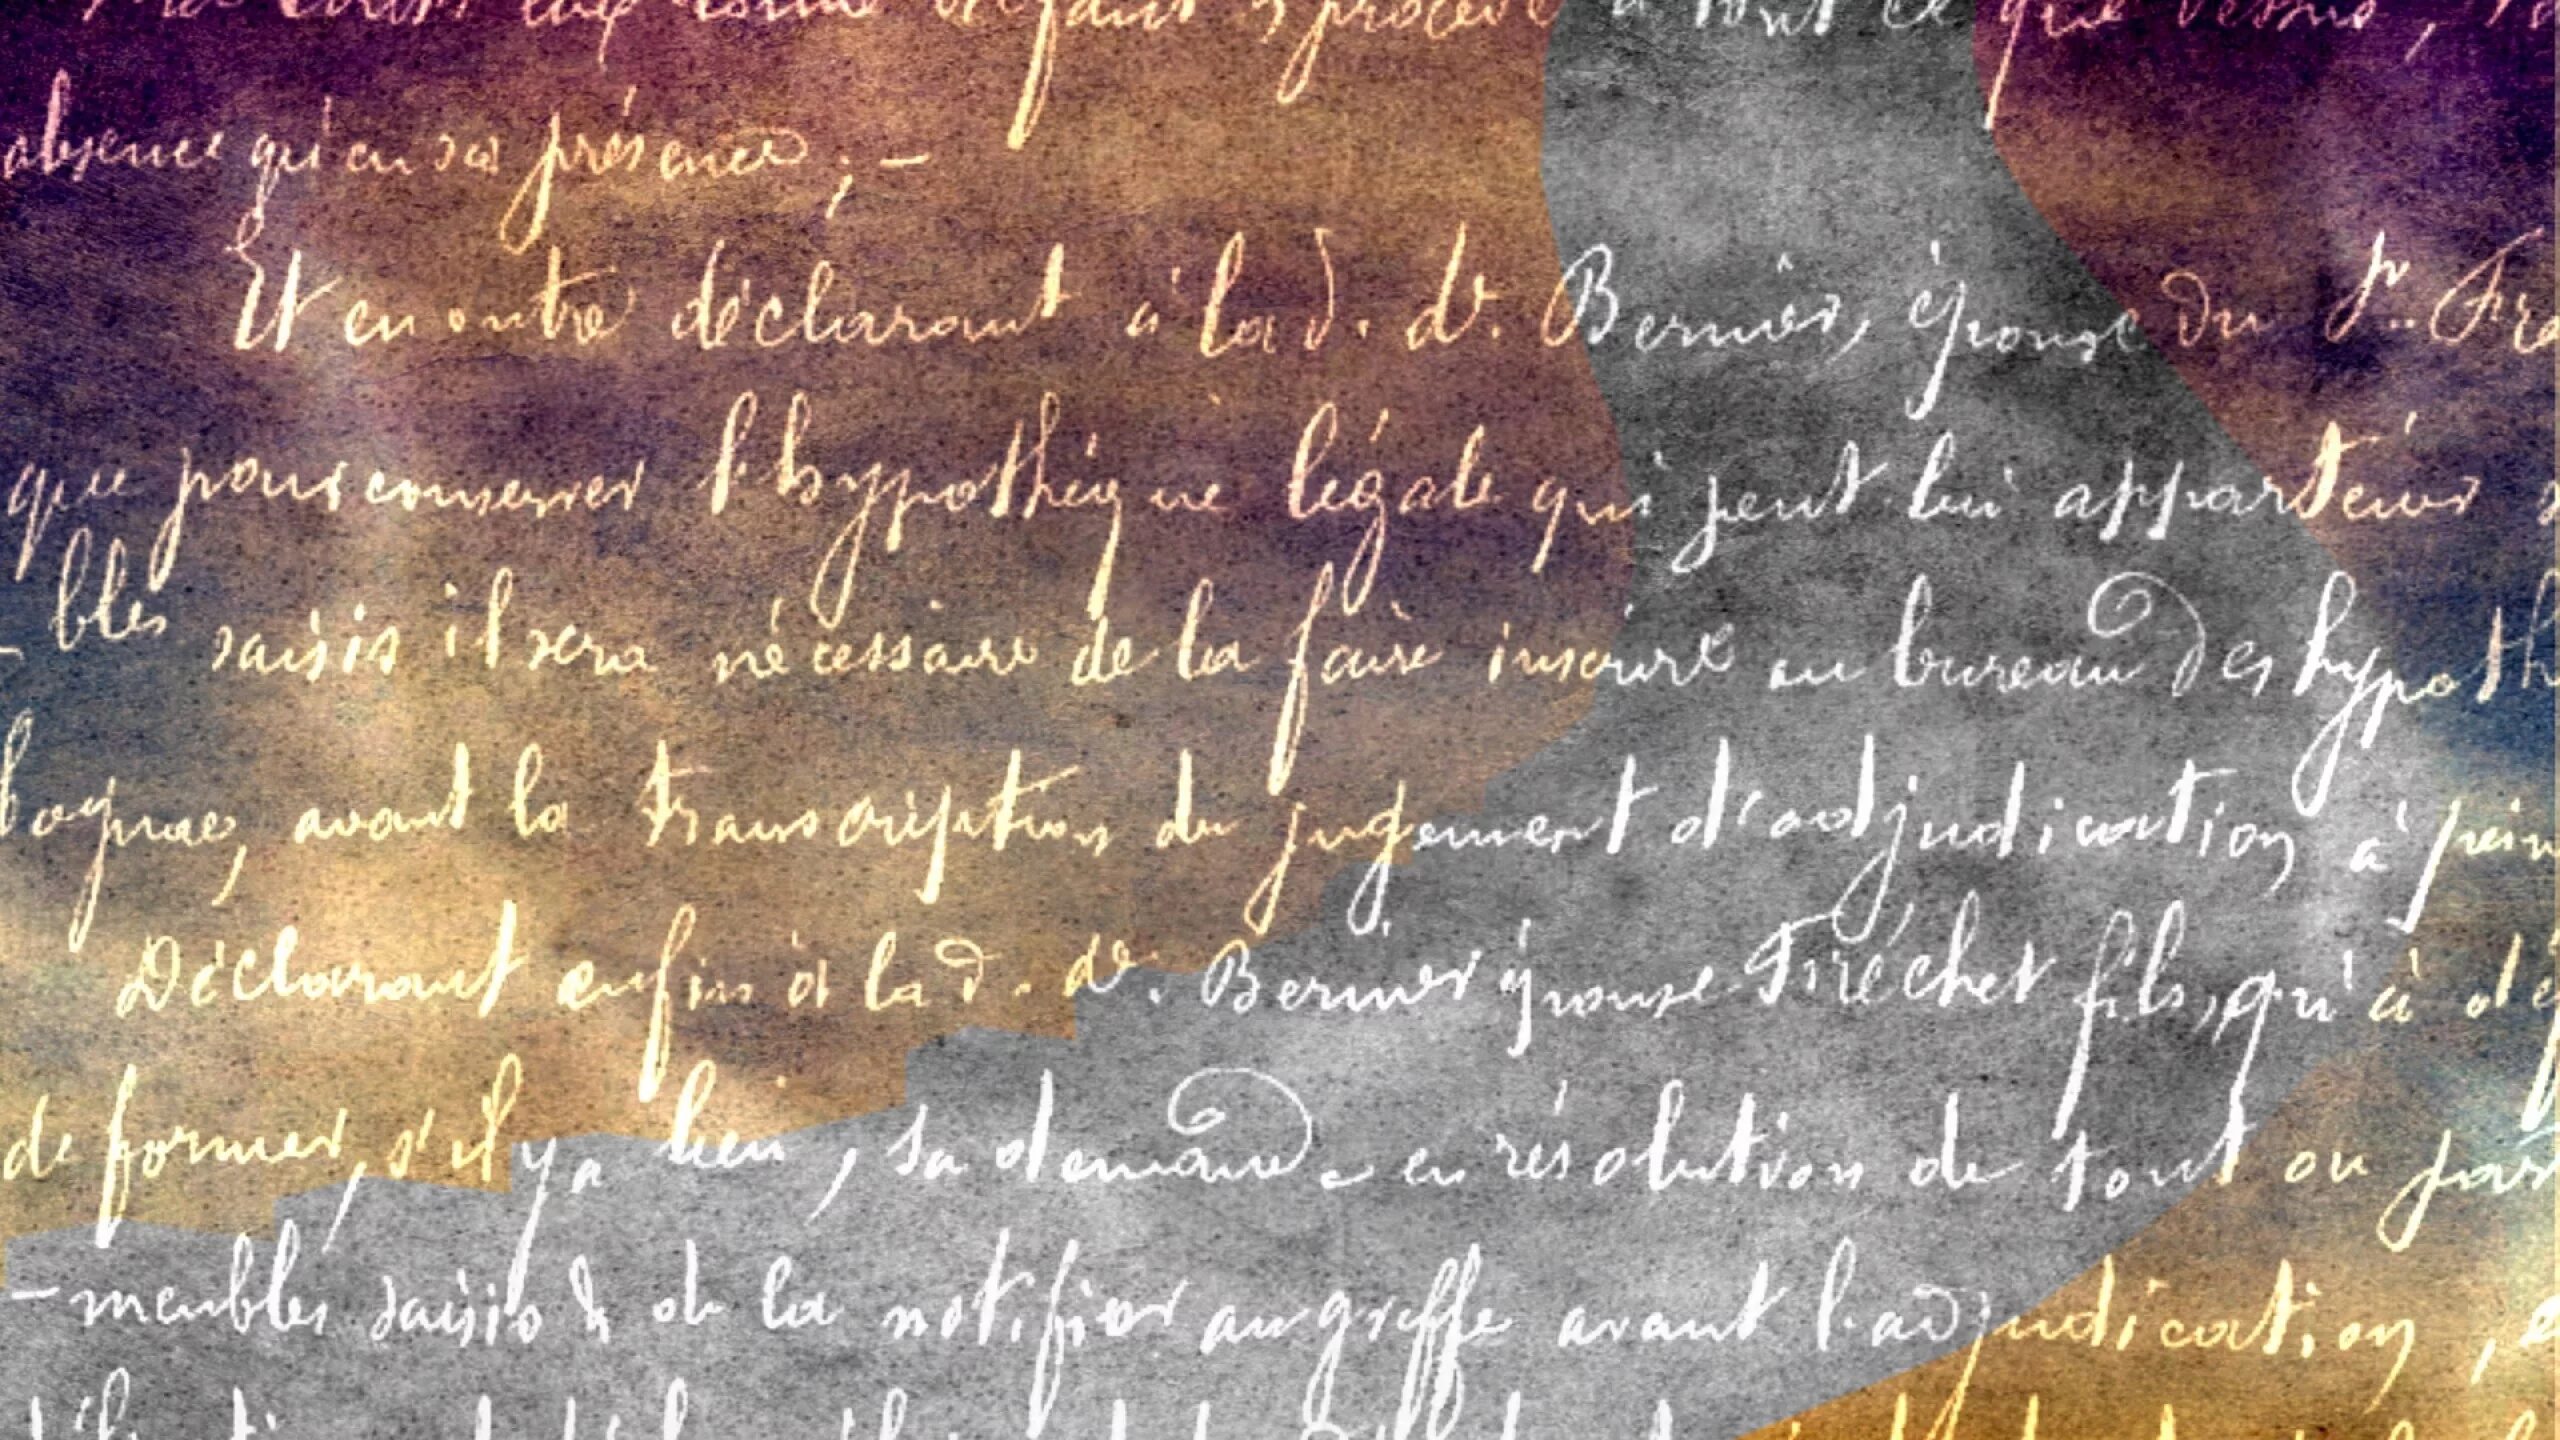 défaut, procédé à tout ce que dessus,
absence qu'en sa présence; —
Et en outre déclarant à la d. dᵉ. Bernier, épouse du sʳ. Fré
que pour conserver l'hypothèque légale qui peut lui appartenir s
- bles saisis il sera nécessaire de la faire inscrire au bureau des hypoth
avant la transcription du jugement d'adjudication, à pein
Déclarant enfin à la d. dᵉ. Bernier épouse Fréchet fils, qu'à dé
de former, s'il y a lieu, sa demande en résolution de tout ou part
- meubles saisis & de la notifier au greffe avant l'adjudication, e